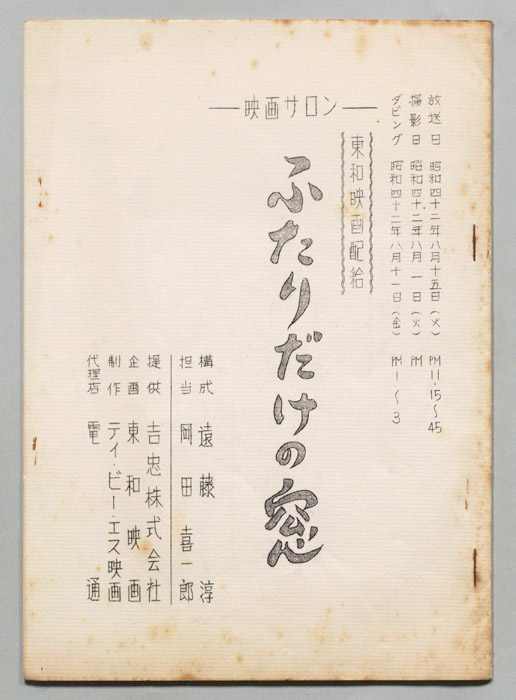 放送日 昭和四十二年八月十五日(火) PM 11.15〜45
撮影日 昭和四十二年八月一日(火) PM
ダビング 昭和四十二年八月十一日(金) PM 1〜3
―映画サロン―
東和映画配給
ふたりだけの窓
構成 遠藤淳
担当 岡田喜一郎
提供 吉忠株式会社
企画 東和映画
制作 テイ・ビー・エス映画
代理店 電通